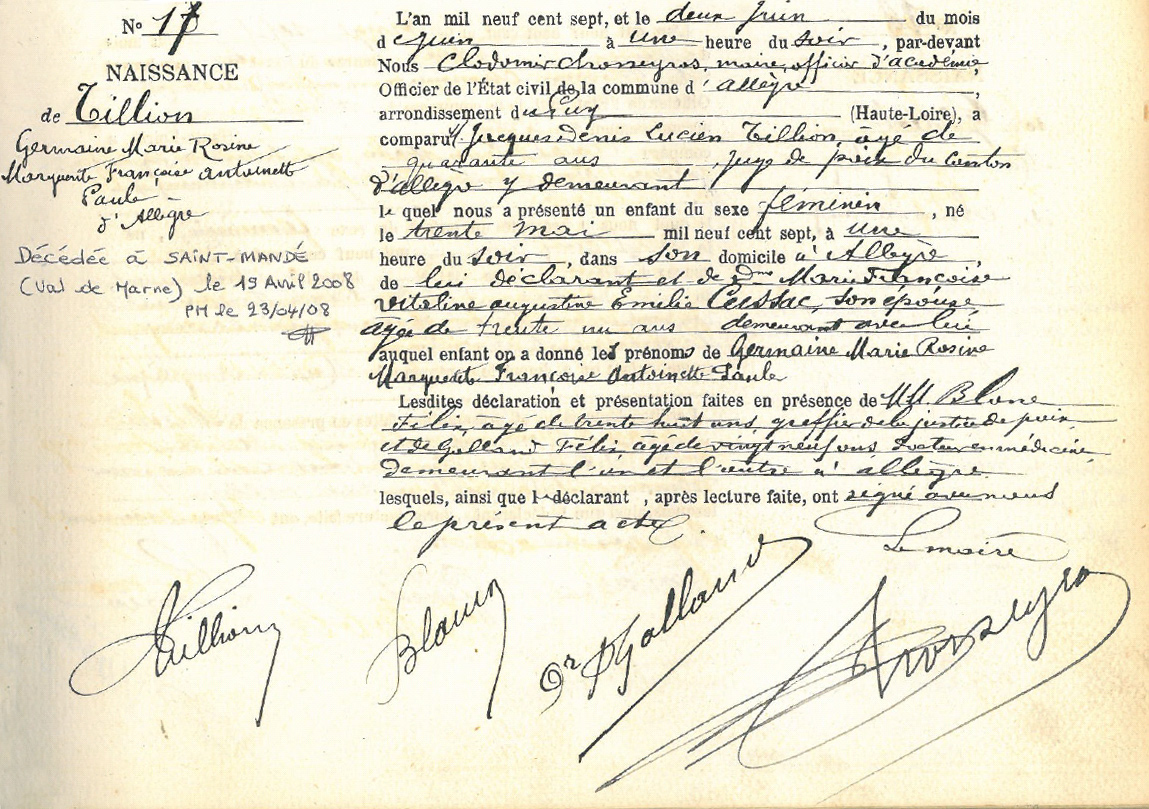 N° 17
NAISSANCE
de Tillion
Germaine Marie Rosine
Marguerite Françoise Antoinette
Paule
d'Allègre
Décédée à SAINT-MANDÉ
(Val de Marne) le 19 Avril 2008
PM le 23/04/08
L'an mil neuf cent sept, et le deux Juin du mois
de Juin à une heure du soir, par-devant
Nous Clodomir Chosseyros, maire, officier d'académie,
Officier de l'État civil de la commune d'Allègre,
arrondissement du Puy (Haute-Loire), a
comparu Mr Jacques Denis Lucien Tillion, âgé de
quarante ans, Juge de paix du Canton
d'Allègre y demeurant
lequel nous a présenté un enfant du sexe féminin, né
le trente mai mil neuf cent sept, à une
heure du soir, dans son domicile à Allègre,
de lui déclarant et de Dme Marie Françoise
Vitaline augustine Emilie Cussac, son épouse
âgée de trente un ans demeurant avec lui
auquel enfant on a donné les prénoms de Germaine Marie Rosine
Marguerite Françoise Antoinette Paule
Lesdites déclaration et présentation faites en présence de MM. Blanc
Félix, âgé de trente huit ans, greffier de la justice de paix,
et de Galland Félix, âgé de vingt neuf ans, Docteur en médecine,
demeurant l'un et l'autre à allègre
lesquels, ainsi que le déclarant, après lecture faite, ont signé avec nous
le présent acte.
Le maire
Tillion
Blanc
Dr F Galland
Chosseyros